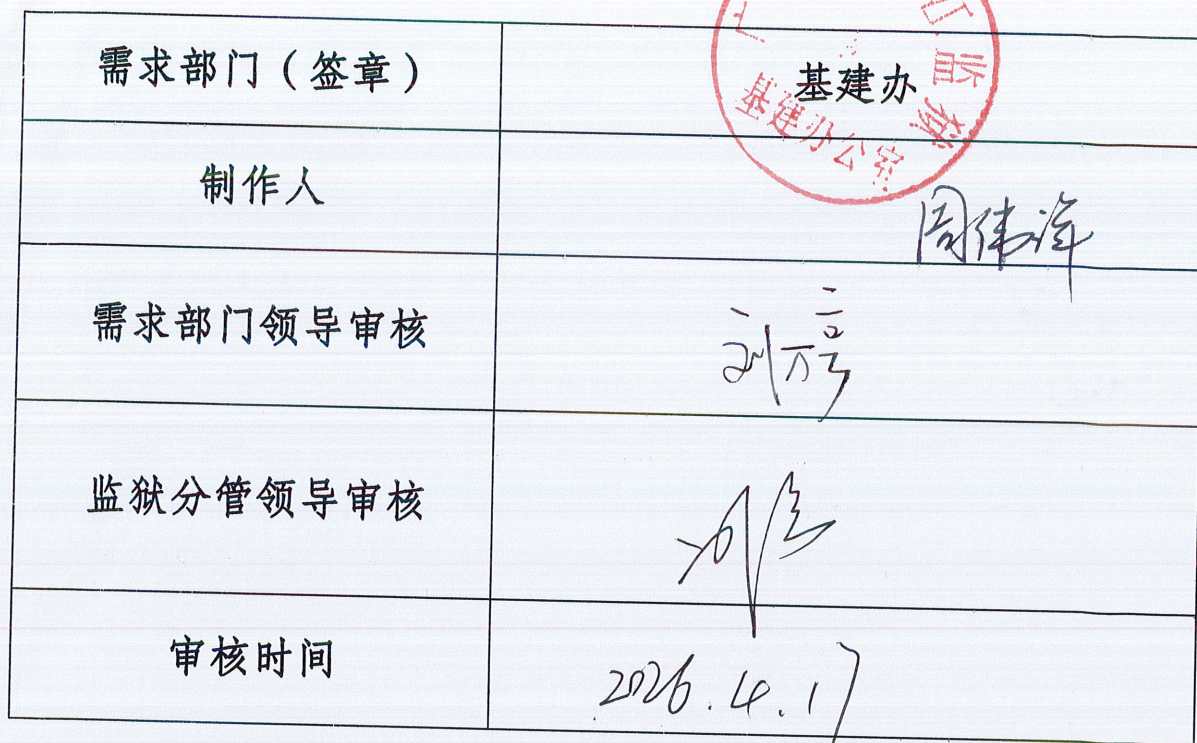 需求部门（签章）
基建办
监狱
基建办公室
制作人
周伟洋
需求部门领导审核
监狱分管领导审核
审核时间
2026.4.17